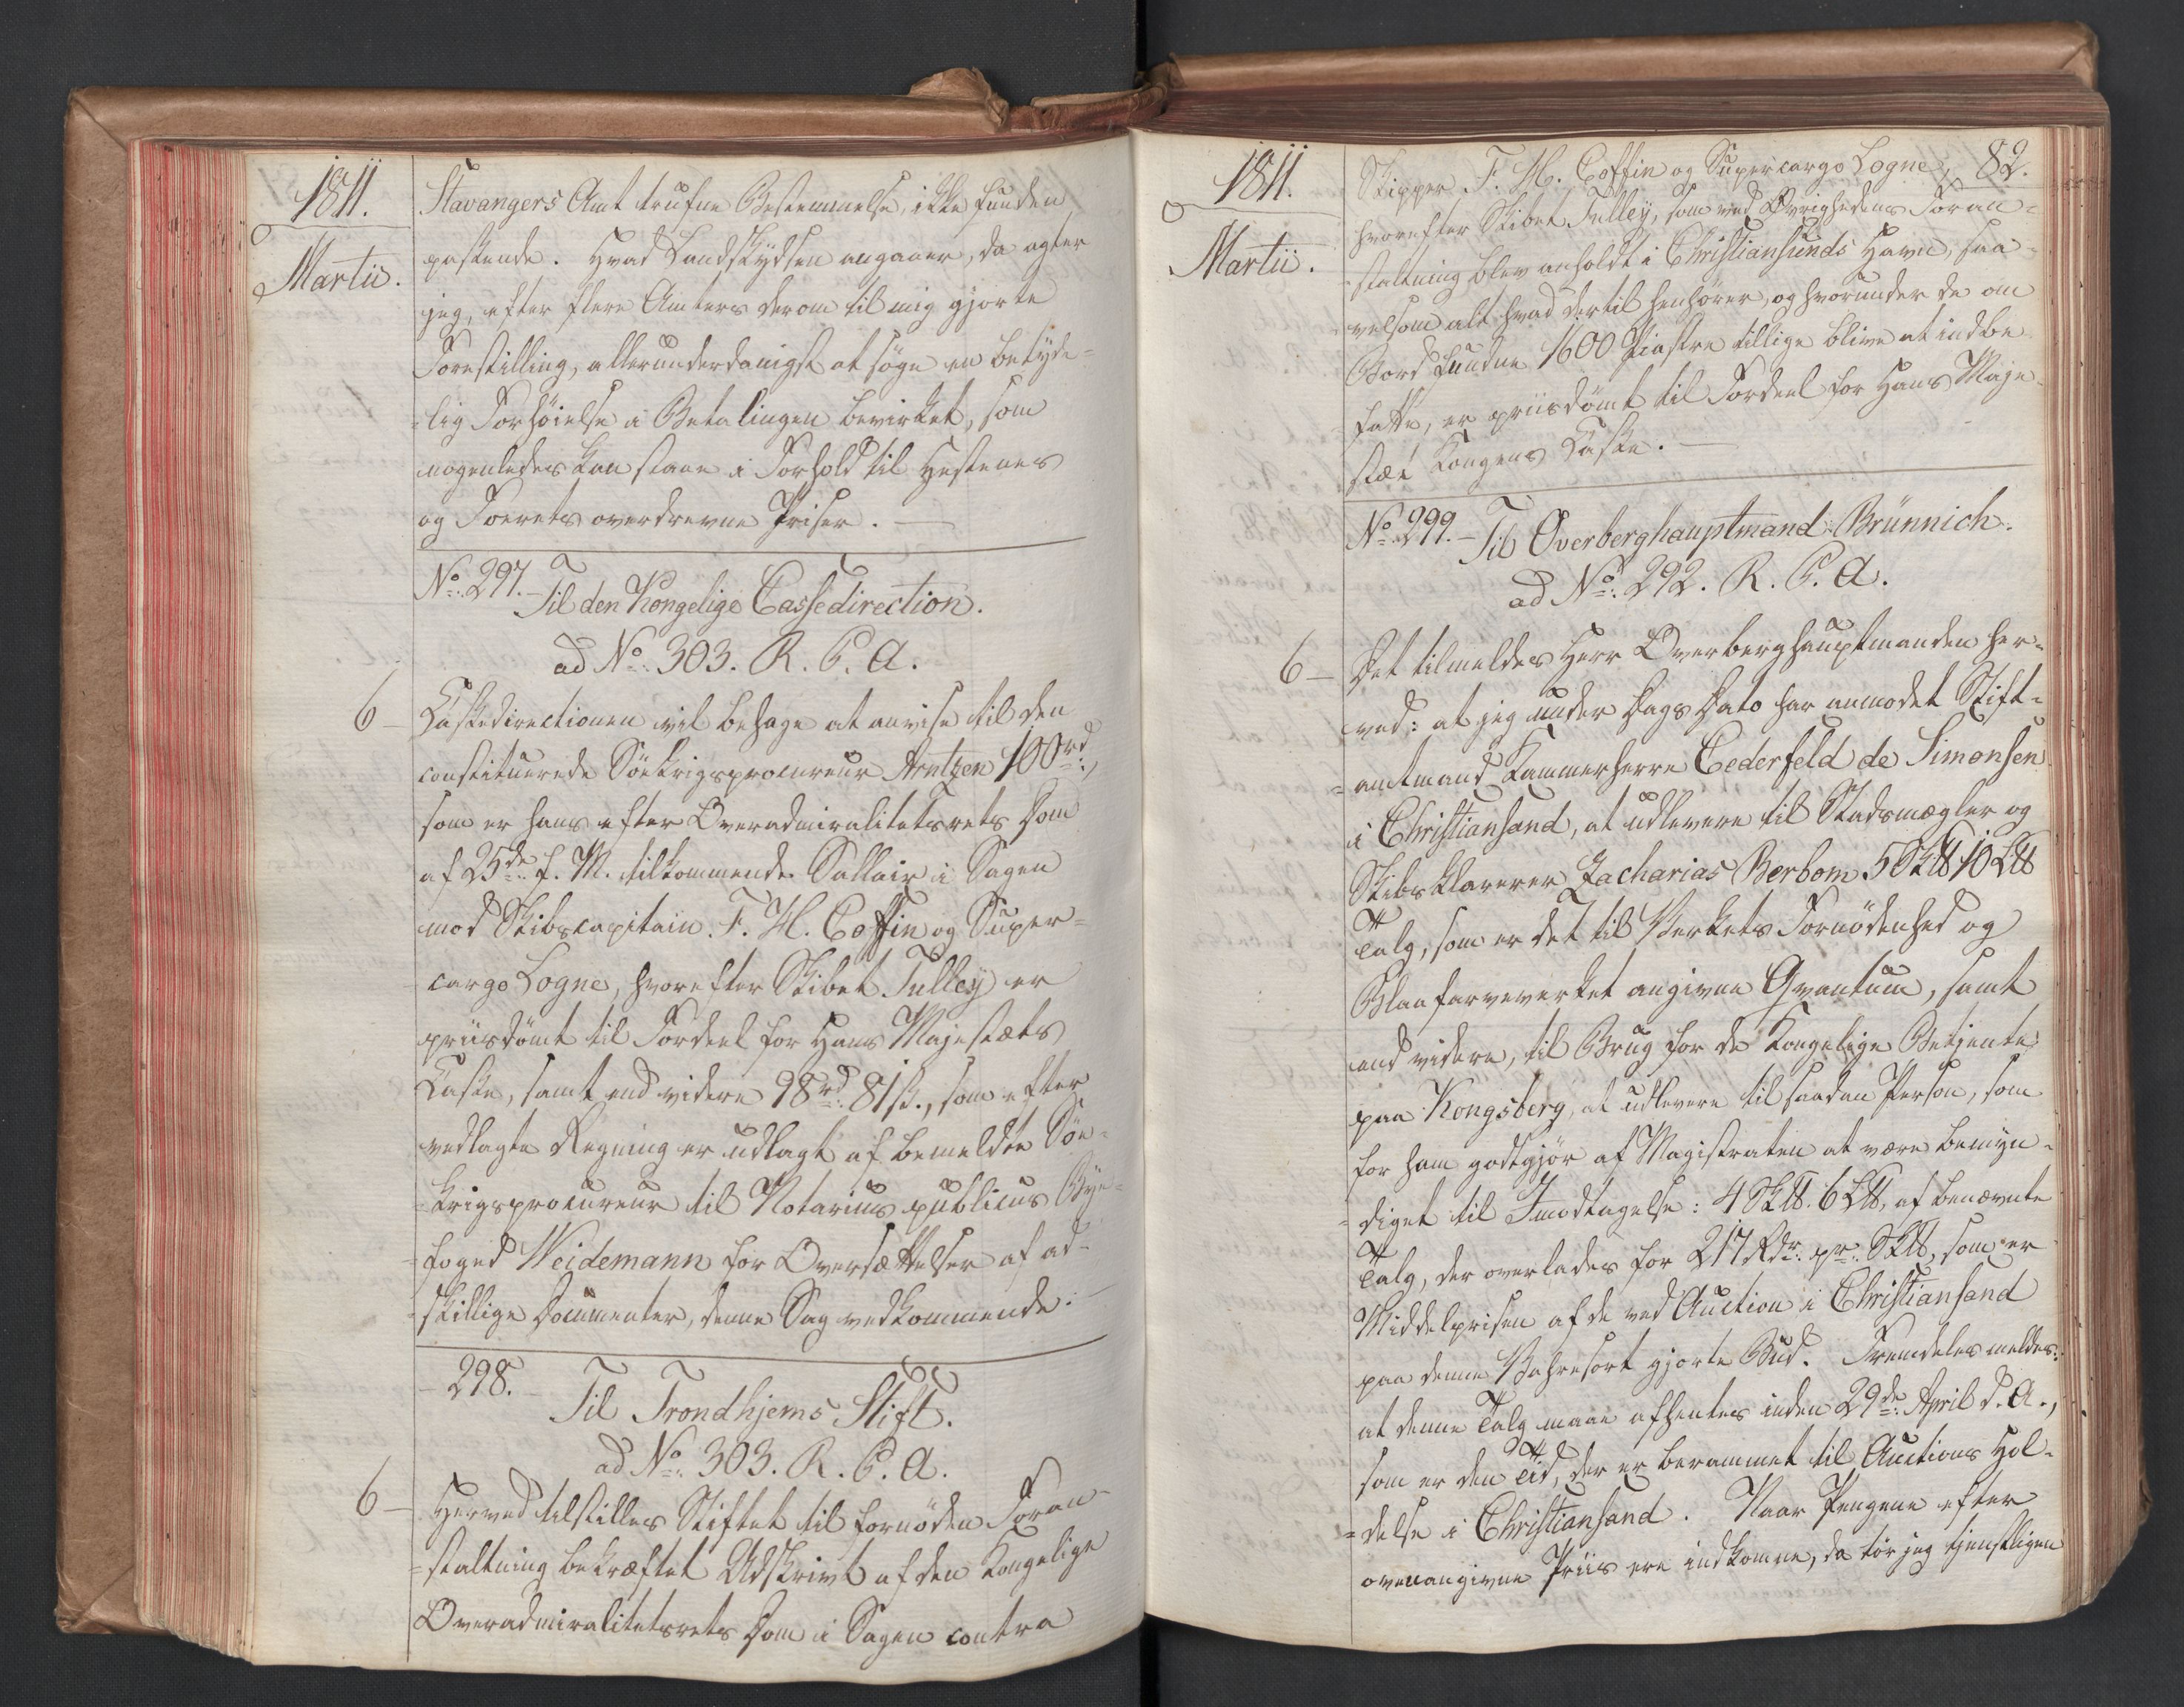 1811.
Martii.
Stavangers Amt trufne Bestemmelse, ikke funden
passende. Hvad Landskydsen angaaer, da agter
jeg, efter flere Amters derom til mig gjorte
Forestilling, allerunderdanigst at søge en betyde-
=lig Forhøielse i Betalingen bevirket, som
nogenledes kan staae i Forhold til Hestenes
og Foerets overdrevne Priser. —
No. 297. - Til den Kongelige Cassedirection.
ad No. 303. R. C. A.
6 - Cassedirectionen vil behage at anvise til den
constituerede Søekrigsprocureur Arntzen 100rd.,
som er hans efter Overadmiralitetsrets Dom
af 25de f. M. tilkommende Sallair i Sagen
mod Skibscapitain F. H. Coffin og Super=
cargo Logne, hvorefter Skibet Tulley er
priisdømt til Fordeel for Hans Majestæts
Casse, samt end videre 98rd. 81 s., som efter
vedlagte Regning er udlagt af bemeldte Søe-
=krigsprocureur til Notarius publicus Bye=
=foged Weidemann for Oversættelser af ad-
=skillige Documenter, denne Sag vedkommende. —
- 298. - Til Trondhjems Stift.
ad No. 303. R. C. A.
6 - Herved tilstilles Stiftet til fornøden Foran-
=staltning bekræftet Udskrivt af den Kongelige
Overadmiralitetsrets Dom i Sagen contra
82.
1811.
Martii.
Skipper F. H. Coffin og Supercargo Logne,
hvorefter Skibet Tulley, som ved Øvrighedens Foran=
=staltning blev anholdt i Christiansunds Havn, saa-
velsom alt hvad dertil henhører, og hvorunder de om
Bord fundne 1600 Piastre tillige blive at indbe
fatte, er priisdømt til Fordeel for Hans Maje
stæt Kongens Casse. —
No. 299. - Til Overberghauptmand Brünnich.
ad No. 292. R. C. A.
6 - Det tilmeldes Herr Overberghauptmanden her=
ved: at jeg under Dags Dato har anmodet Stift=
=amtmand Kammerherre Cederfeld de Simonsen
i Christiansand, at udlevere til Stadsmægler og
Skibsklarerer Zacharias Berbom 5 Sk℔ 10 L℔
Talg, som er det til Verkets Fornødenhed og
Blaafarveverket angivne Qvantum, samt
end videre, til Brug for de Kongelige Betjente
paa Kongsberg, at udlevere til saadan Person, som
for ham godtgjør af Magistraten at være bemyn-
=diget til Imodtagelse: 4 Sk℔. 6 L℔. af benævnte
Talg, der overlades for 217 Rdr. pr. Sk℔, som er
Middelprisen af de ved Auction i Christiansand
paa denne Vahresort gjorte Bud. Fremdeles meldes:
at denne Talg maae afhentes inden 29de April d. A.,
som er den Tid, der er berammet til Auctions Hol-
=delse i Christiansand. Naar Pengene efter
ovenangivne Priis ere indkomne, da tør jeg tjenstligen